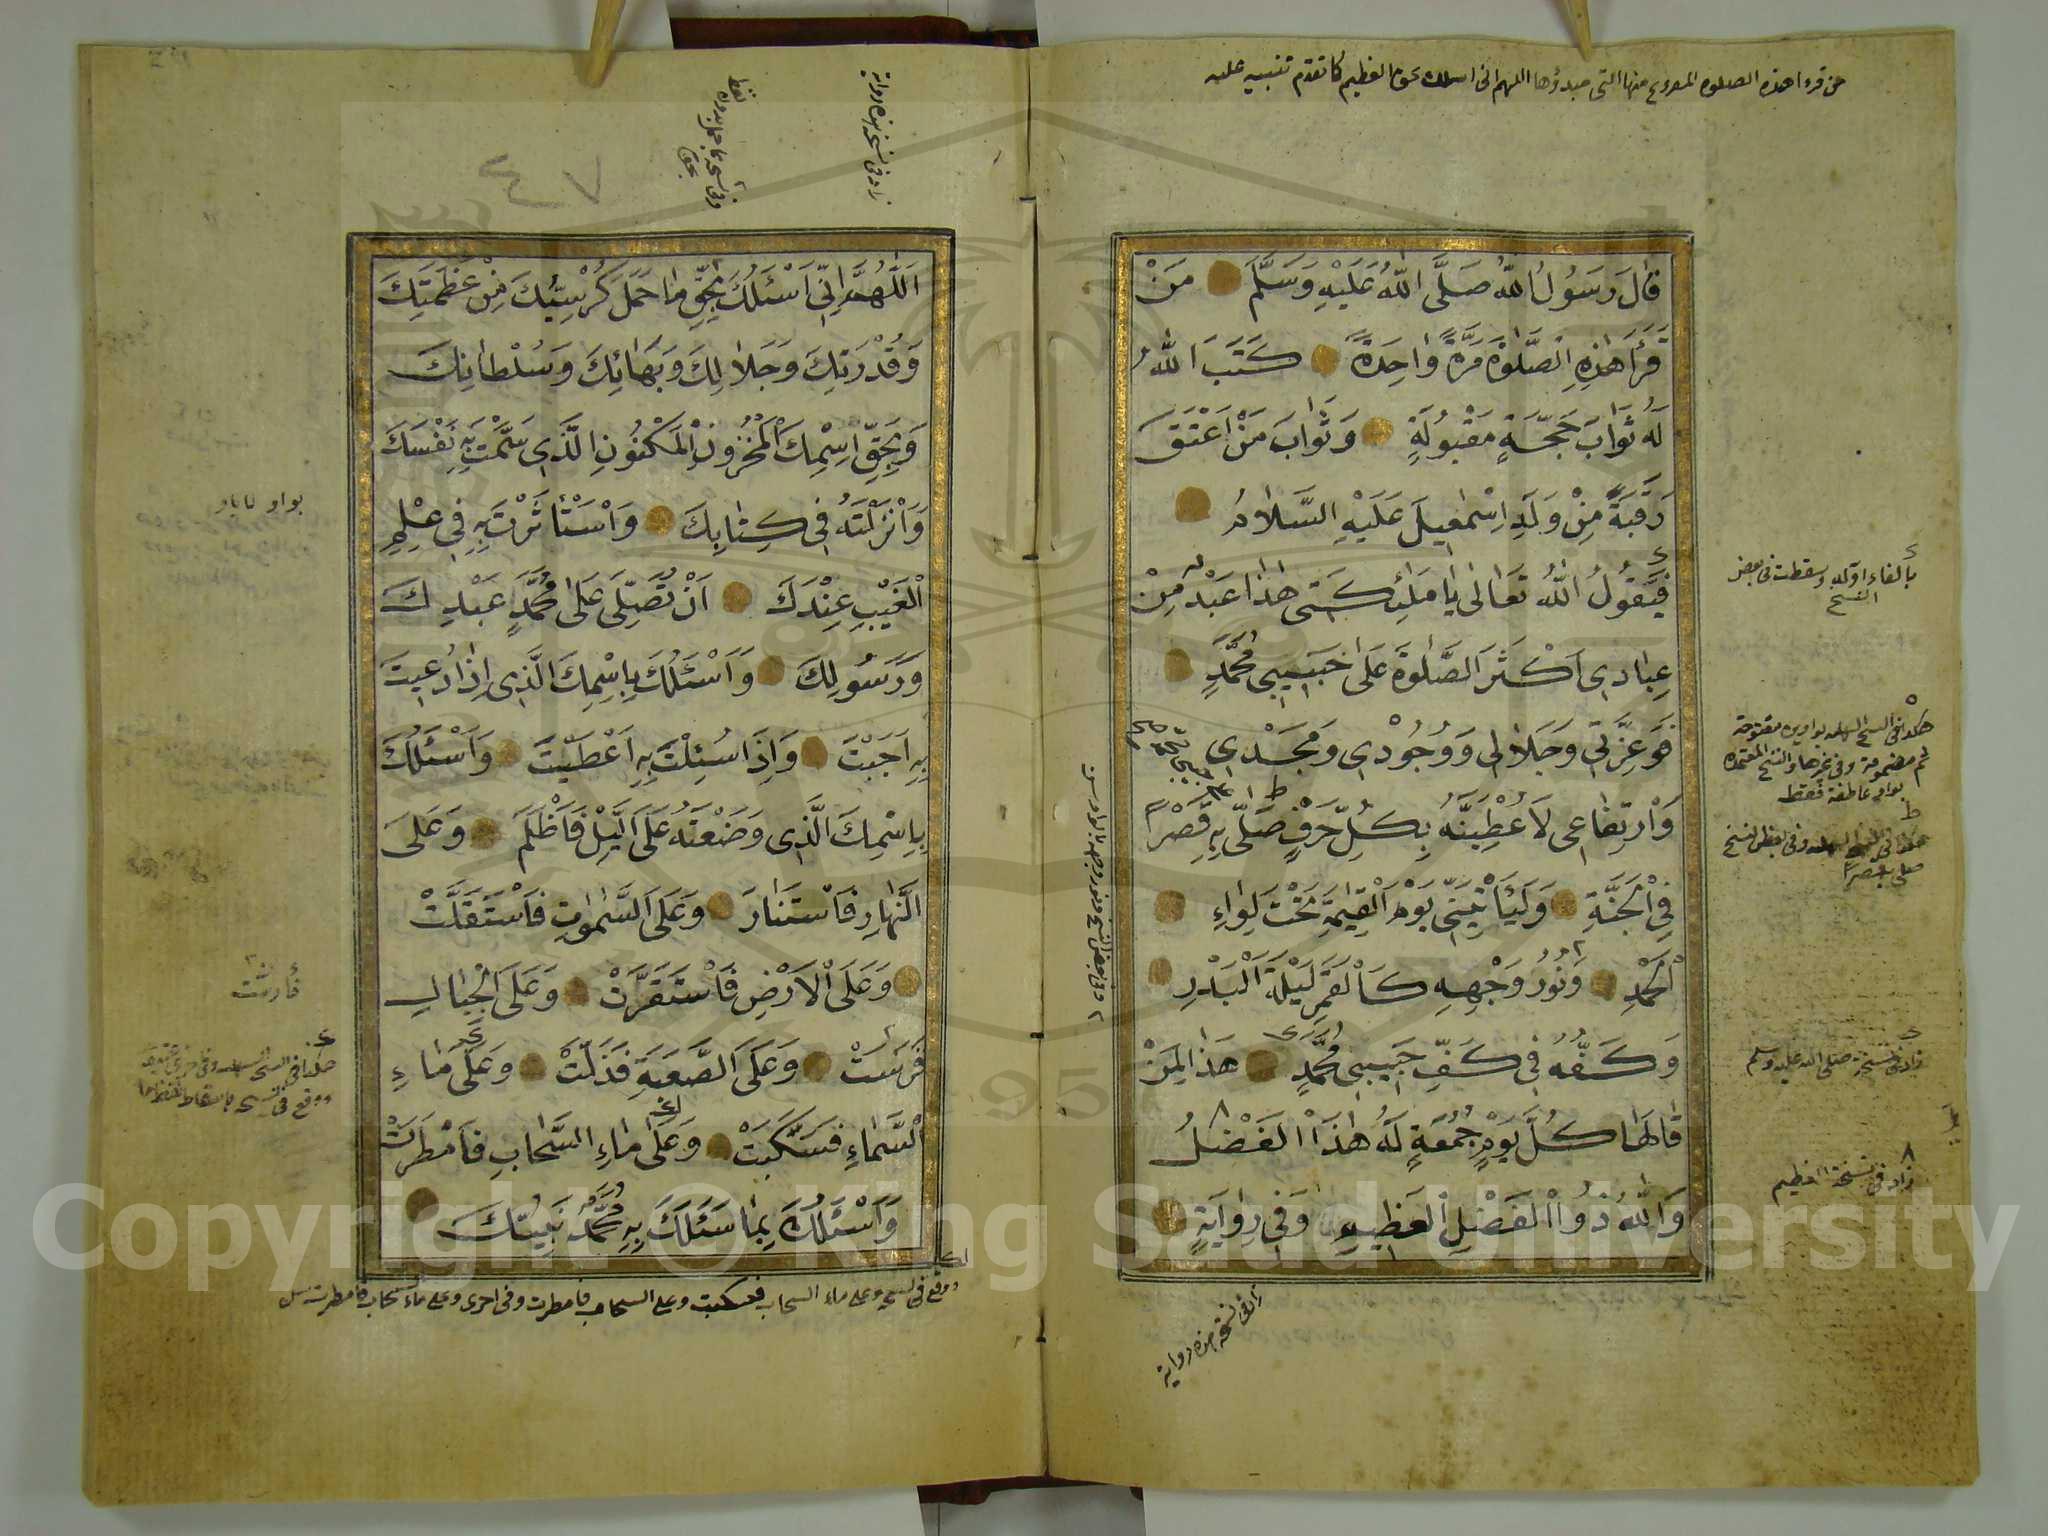 من قرء هذه الصلوة المروع منها التى مبدؤها اللهم انى اسالك بحق العظيم كما تقدم تنبيه عليه
قَالَ رَسُولُ اللّٰهِ صَلَّى اللّٰهُ عَلَيْهِ وَسَلَّمَ مَنْ
قَرَأَ هٰذِهِ الصَّلٰوةَ مَرَّةً وَاحِدَةً كَتَبَ اللّٰهُ
لَهُ ثَوَابَ حَجَّةٍ مَقْبُولَةٍ وَثَوَابَ مَنْ اَعْتَقَ
رَقَبَةً مِنْ وَلَدِ اِسْمٰعِيلَ عَلَيْهِ السَّلَامُ
فَيَقُولُ اللّٰهُ تَعَالٰى يَا مَلٰئِكَتِى هٰذَا عَبْدٌ مِنْ
عِبَادِى اَكْثَرَ الصَّلٰوةَ عَلٰى حَبِيبِى مُحَمَّدٍ
فَوَعِزَّتِى وَجَلَالِى وَوُجُودِى وَمَجْدِى
وَارْتِفَاعِى لَاُعْطِيَنَّهُ بِكُلِّ حَرْفٍ صَلَّى بِهِ قَصْرًا
فِى الْجَنَّةِ وَلَيَأْتِيَنِّى يَوْمَ الْقِيٰمَةِ تَحْتَ لِوَاءِ
الْحَمْدِ وَنُورُ وَجْهِهِ كَالْقَمَرِ لَيْلَةَ الْبَدْرِ
وَكَفُّهُ فِى كَفِّ حَبِيبِى مُحَمَّدٍ هٰذَا لِمَنْ
قَالَهَا كُلَّ يَوْمِ جُمُعَةٍ لَهُ هٰذَا الْفَضْلُ
وَاللّٰهُ ذُو الْفَضْلِ الْعَظِيمِ وَفِى رِوَايَةٍ
بالفاء اوله وسقطت فى بعض
النسخ
هكذا فى النسخ السهلية بواوين مفتوحة
ثم مضمومة وفى غيرها والنسخ المعتمدة
بواو عاطفة فقط
زاد فى نسخة صلى الله عليه وسلم
زاد فى نسخة العظيم
وفى بعض النسخ ونور وجهه
زاد فى نسخة هذه رواية
زاد فى نسخة هذه رواية
وفى نسخة بما حمل بدون
بحق
فقط
٤٧
اَللّٰهُمَّ اِنِّى اَسْئَلُكَ بِحَقِّ مَا حَمَلَ كُرْسِيُّكَ مِنْ عَظَمَتِكَ
وَقُدْرَتِكَ وَجَلَالِكَ وَبَهَائِكَ وَسُلْطَانِكَ
وَبِحَقِّ اسْمِكَ الْمَخْزُونِ الْمَكْنُونِ الَّذِى سَمَّيْتَ بِهِ نَفْسَكَ
وَاَنْزَلْتَهُ فِى كِتَابِكَ وَاسْتَأْثَرْتَ بِهِ فِى عِلْمِ
الْغَيْبِ عِنْدَكَ اَنْ تُصَلِّىَ عَلٰى مُحَمَّدٍ عَبْدِكَ
وَرَسُولِكَ وَاَسْئَلُكَ بِاسْمِكَ الَّذِى اِذَا دُعِيتَ
بِهِ اَجَبْتَ وَاِذَا سُئِلْتَ بِهِ اَعْطَيْتَ وَاَسْئَلُكَ
بِاسْمِكَ الَّذِى وَضَعْتَهُ عَلَى اللَّيْلِ فَاَظْلَمَ وَعَلَى
النَّهَارِ فَاسْتَنَارَ وَعَلَى السَّمٰوَاتِ فَاسْتَقَلَّتْ
وَعَلَى الْاَرْضِ فَاسْتَقَرَّتْ وَعَلَى الْجِبَالِ
فَرَسَتْ وَعَلَى الصَّعْبَةِ فَذَلَّتْ وَعَلٰى مَاءِ
السَّمَاءِ فَسَكَبَتْ وَعَلٰى مَاءِ السَّحَابِ فَاَمْطَرَتْ
وَاَسْئَلُكَ بِمَا سَئَلَكَ بِهِ مُحَمَّدٌ نَبِيُّكَ
بواو لا ياو
فأرست
ووقع فى نسخة وعلى ماء السحاب فسكبت وعلى السحاب فامطرت وفى اخرى وعلى ماء السحاب فامطرت
Copyright © King Saud University
1957